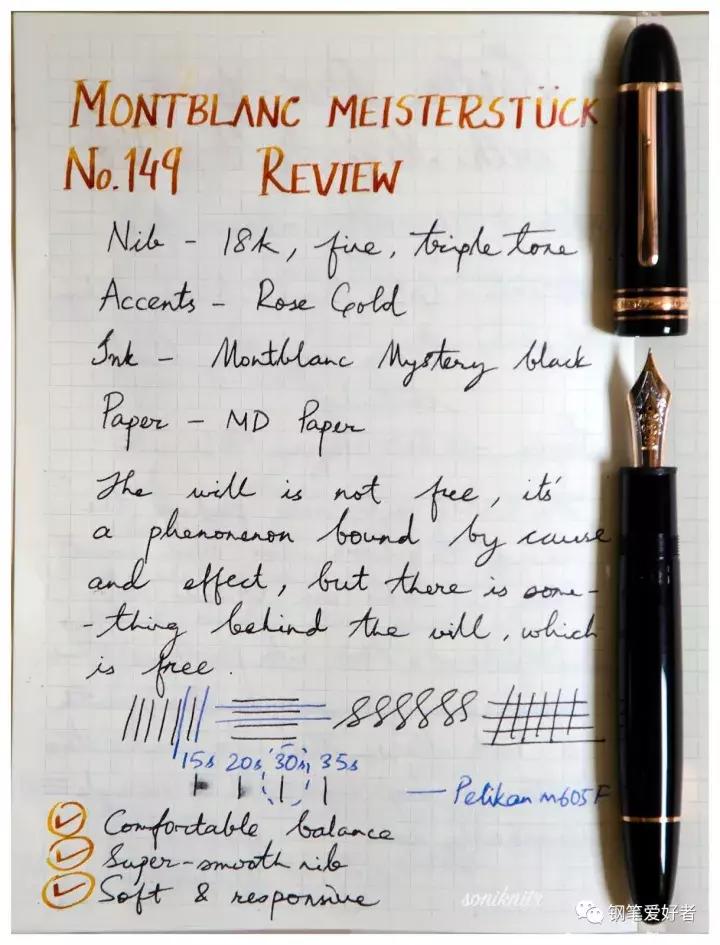 MONTBLANC MEISTERSTÜCK
No.149 REVIEW
Nib - 18k, fine, triple tone
Accents - Rose Gold
Ink - Montblanc Mystery black
Paper - MD Paper
The will is not free, it's
a phenonenon bound by cause
and effect, but there is some-
-thing behind the will, which
is free.
15s 20s 30s 35s
— Pelikan m605 F
Comfortable balance
Super-smooth nib
Soft & responsive
soniknitr
钢笔爱好者